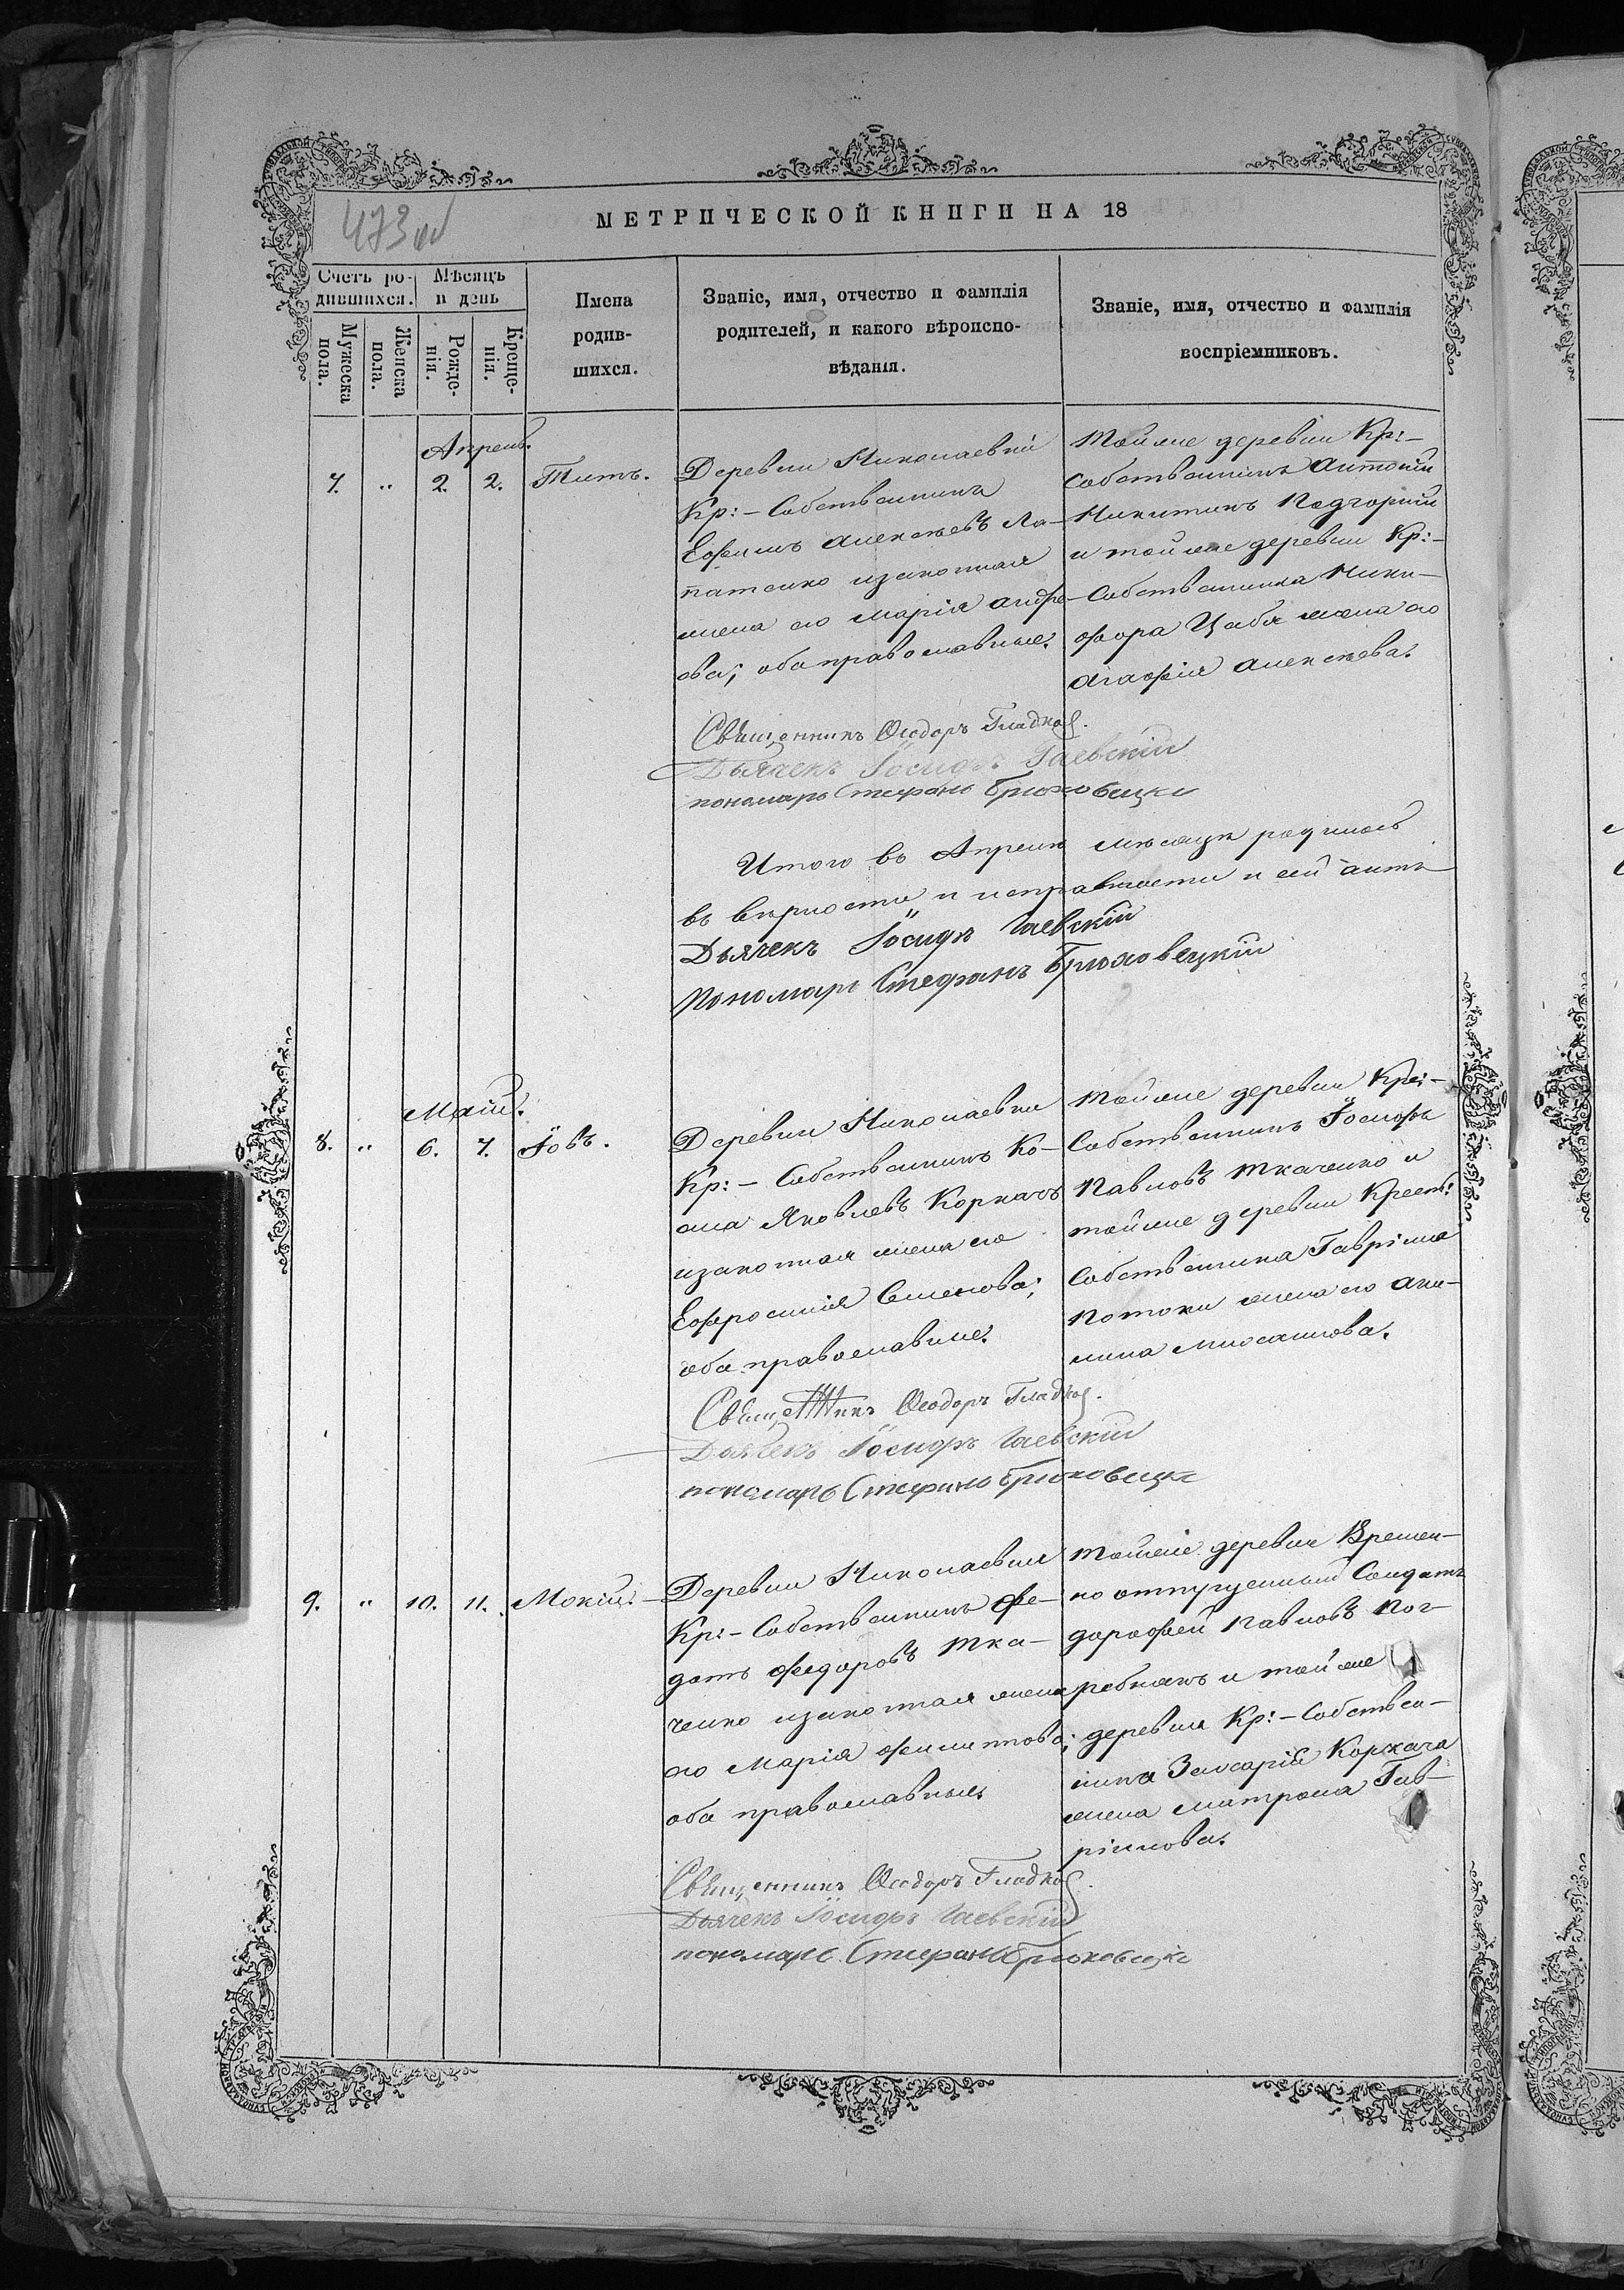 МЕТРИЧЕСКОЙ КНИГИ НА 18
473 об
Счетъ ро-
дившихся.
Мѣсяцъ
и день
Мужеска
пола.
Женска
пола.
Рожде-
нія.
Креще-
нія.
Имена
родив-
шихся.
Званіе, имя, отчество и фамилія
родителей, и какого вѣроиспо-
вѣданія.
Званіе, имя, отчество и фамилія
воспріемниковъ.
Апрель.
7. " 2. 2. Титъ.
Деревни Николаевки
Кр:- Собственникъ
Ефимъ Алексѣевъ Ло-
патенко изаконная
жена его Марія Андре-
ева; оба православные.
Тойже деревни Кр:-
Собственникъ Антоній
Никитинъ Подгорний
и тойже деревни Кр:-
Собственника Ники-
фора Цабя жена его
Агафія Алексѣева.
Священникъ Ѳеодоръ Гладкой.
Дьячекъ Іосифъ Гаевскій
пономарь Стефанъ Брюховецкі
Итого въ Апрелѣ мѣсяцѣ родилось
въ вѣрности и исправности и сей актъ
Дьячекъ Іосифъ Гаевскій
Пономарь Стефанъ Брюховецкій
Май.
8. " 6. 7. Іовъ.
Деревни Николаевки
Кр:- Собственникъ Ко-
сма Яковлевъ Коркачъ
изаконная жена его
Ефросинія Семенова;
оба православные.
Тойже деревни Кре:-
Собственникъ Іосифъ
Павловъ Ткаченко и
тойже деревни Крест:
Собственника Гавріила
Потоки жена его Аки-
лина Михаилова.
Священникъ Ѳеодоръ Гладкой.
Дьячекъ Іосифъ Гаевскій
пономарь Стефанъ Брюховецкі
9. " 10. 11. Мокій.
Деревни Николаевки
Кр:- Собственникъ Фе-
дотъ Федоровъ Тка-
ченко изаконная жена
его Марія Филиппова;
оба православные.
Тойже деревни Времен-
но отпущенный Солдатъ
Дорофей Павловъ Пог-
ребнякъ и тойже
деревни Кр:- Собствен-
ника Захарія Коркача
жена Матрона Гав-
ріилова.
Священникъ Ѳеодоръ Гладкой.
Дьячекъ Іосифъ Гаевскій
пономарь Стефанъ Брюховецкі